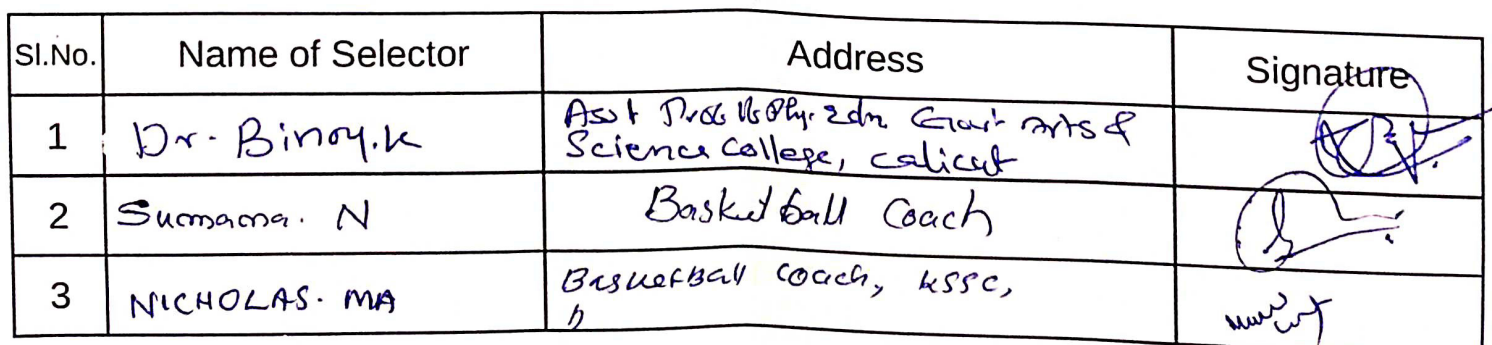 Sl.No. Name of Selector Address Signature
1 Dr. Binoy.K Asst Prof Phy. Edn Govt Arts &
Science College, Calicut
2 Sumama. N Basketball Coach
3 NICHOLAS. MA Basketball coach, KSSC,